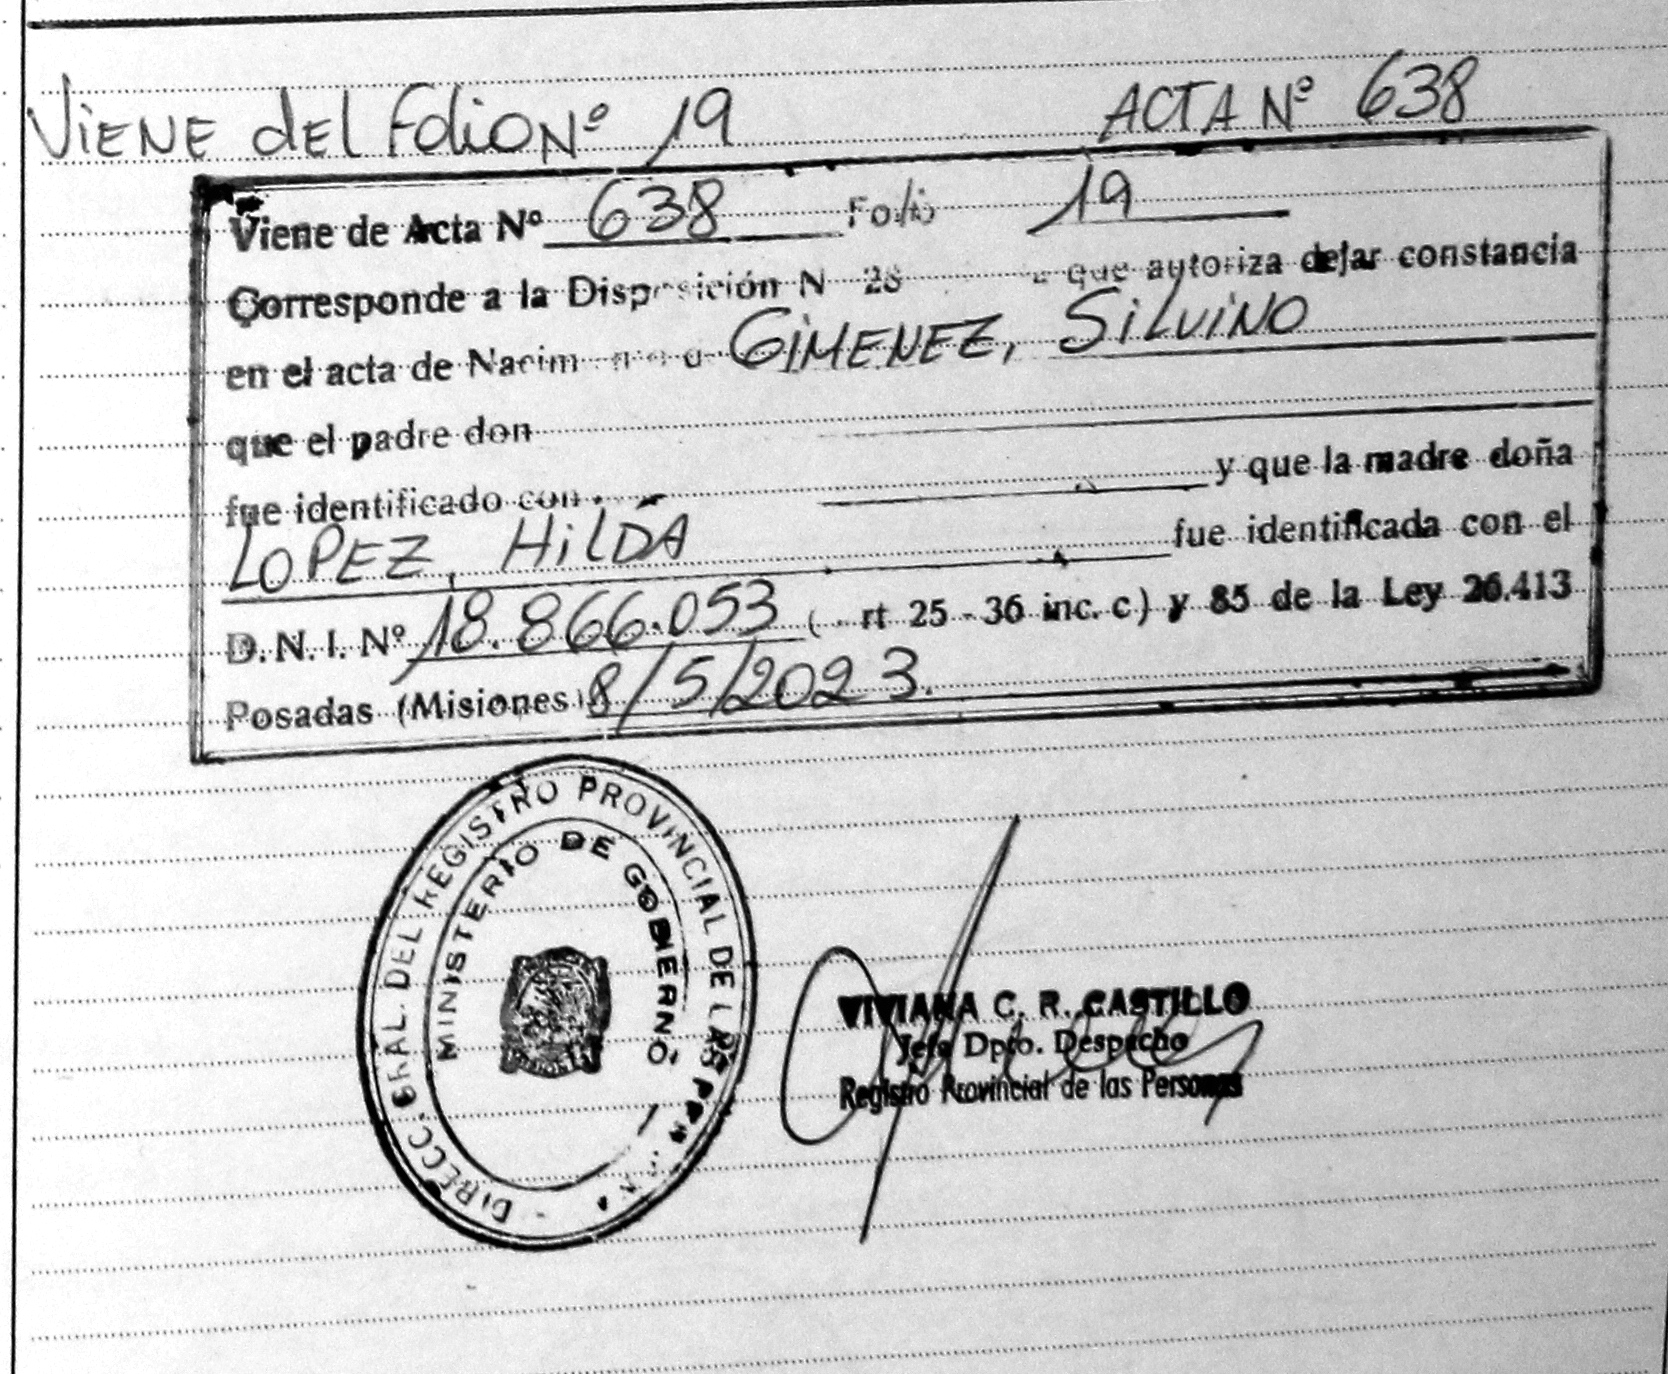 ViENE dEL FoliO Nº 19 ACTA Nº 638
Viene de Acta Nº 638 Folio 19
Corresponde a la Disposición N 28 que autoriza dejar constancia
en el acta de GiMENEZ, SiLViNO
que el padre don
fue identificado con y que la madre doña
LOPEZ, HiLDA fue identificada con el
D. N. I. Nº 18.866.053 ( rt 25 - 36 inc. c) y 85 de la Ley 26.413
Posadas (Misiones) 8/5/2023.
DIRECC. GRAL. DEL REGISTRO PROVINCIAL DE LAS
MINISTERIO DE GOBIERNO
VIVIANA C. R. CASTILLO
Jefa Dpto. Despacho
Registro Provincial de las Personas